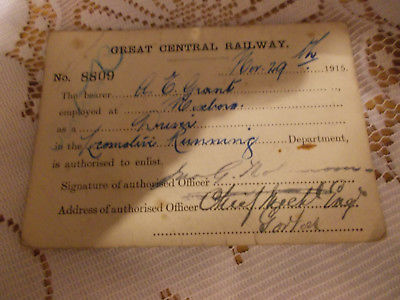 GREAT CENTRAL RAILWAY.
No. 8809 Nov. 29th 1915.
The bearer A E Grant,
employed at Mexboro,
as a
in the Locomotive Running Department,
is authorised to enlist.
Signature of authorised Officer Jno G.
Address of authorised Officer Chief Mech Engr
Gorton